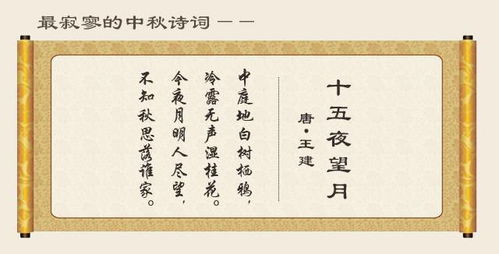 最寂寥的中秋诗词－－
十五夜望月
唐·王建
中庭地白树栖鸦，
冷露无声湿桂花。
今夜月明人尽望，
不知秋思落谁家。